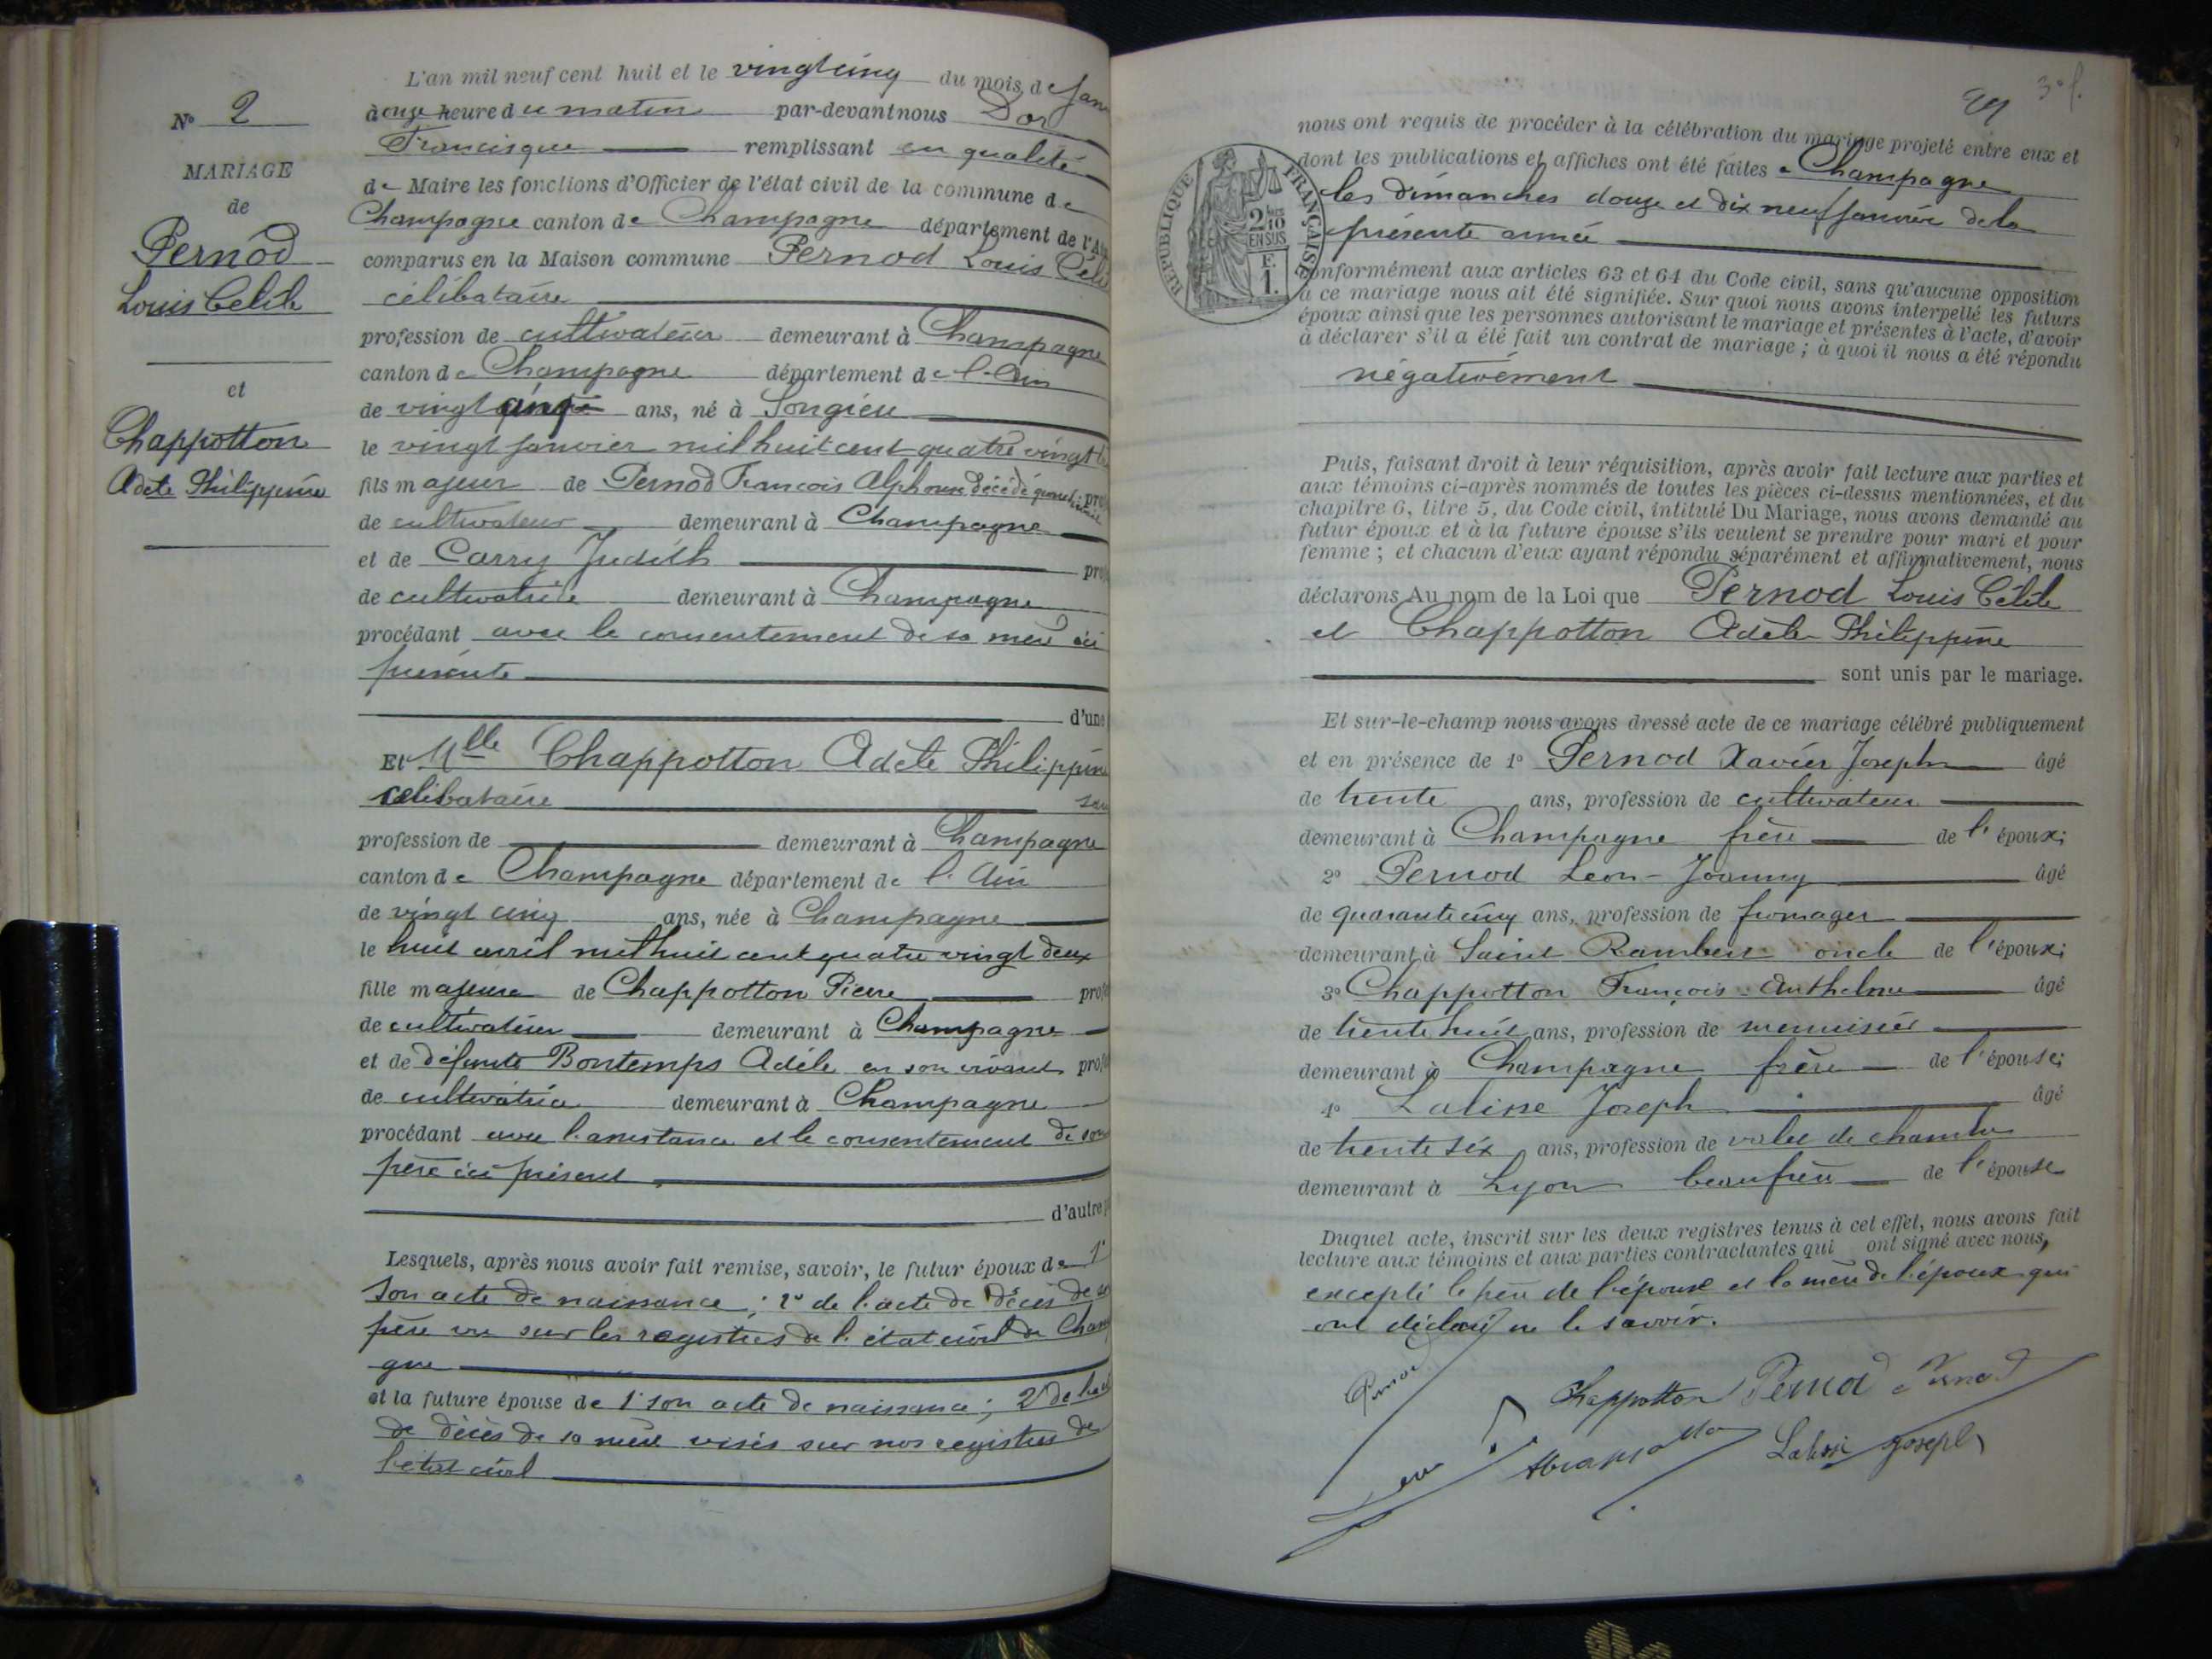 N° 2
MARIAGE
de
Pernod
Louis Célile
et
Chappotton
Adèle Philippine
L'an mil neuf cent huit et le vingt cinq du mois de Jan
à onze heure du matin par-devant nous Dor
Francisque remplissant en qualité
de Maire les fonctions d'Officier de l'état civil de la commune de
Champagne canton de Champagne département de l'Ain
comparus en la Maison commune Pernod Louis Céli
célibataire
profession de cultivateur demeurant à Champagne
canton de Champagne département de l'Ain
de vingt cinq ans, né à Songieu
le vingt janvier mil huit cent quatre vingt
fils majeur de Pernod François Alphonse décédé quand vivait prof
de cultivateur demeurant à Champagne
et de Carry Judith prof
de cultivatrice demeurant à Champagne
procédant avec le consentement de sa mère ici
présente
d'une
Et Mlle Chappotton Adèle Philippine
célibataire sans
profession de demeurant à Champagne
canton de Champagne département de l'Ain
de vingt cinq ans, née à Champagne
le huit avril mil huit cent quatre vingt deux
fille majeure de Chappotton Pierre prof
de cultivateur demeurant à Champagne
et de défunte Bontemps Adèle en son vivant prof
de cultivatrice demeurant à Champagne
procédant avec l'assistance et le consentement de son
père ici présent
d'autre p
Lesquels, après nous avoir fait remise, savoir, le futur époux de 1°
son acte de naissance; 2° de l'acte de décès de so
père vu sur les registres de l'état civil de Champa
gne
et la future épouse de 1° son acte de naissance; 2° de l'acte
de décès de sa mère visés sur nos registres de
l'état civil
3° f.
RÉPUBLIQUE FRANÇAISE
2/10 EN SUS
F. 1.
nous ont requis de procéder à la célébration du mariage projeté entre eux et
dont les publications et affiches ont été faites à Champagne
les dimanches douze et dix neuf janvier de la
présente année
conformément aux articles 63 et 64 du Code civil, sans qu'aucune opposition
à ce mariage nous ait été signifiée. Sur quoi nous avons interpellé les futurs
époux ainsi que les personnes autorisant le mariage et présentes à l'acte, d'avoir
à déclarer s'il a été fait un contrat de mariage; à quoi il nous a été répondu
négativement
Puis, faisant droit à leur réquisition, après avoir fait lecture aux parties et
aux témoins ci-après nommés de toutes les pièces ci-dessus mentionnées, et du
chapitre 6, titre 5, du Code civil, intitulé Du Mariage, nous avons demandé au
futur époux et à la future épouse s'ils veulent se prendre pour mari et pour
femme; et chacun d'eux ayant répondu séparément et affirmativement, nous
déclarons Au nom de la Loi que Pernod Louis Célile
et Chappotton Adèle Philippine
sont unis par le mariage.
Et sur-le-champ nous avons dressé acte de ce mariage célébré publiquement
et en présence de 1° Pernod Xavier Joseph âgé
de trente ans, profession de cultivateur
demeurant à Champagne frère de l'époux;
2° Pernod Leon-Joanny âgé
de quarante cinq ans, profession de fromager
demeurant à Saint Rambert oncle de l'époux;
3° Chappotton François-Anthelme âgé
de trente huit ans, profession de menuisier
demeurant à Champagne frère de l'épouse;
4° Lalisse Joseph âgé
de trente six ans, profession de valet de chambre
demeurant à Lyon beau frère de l'épouse
Duquel acte, inscrit sur les deux registres tenus à cet effet, nous avons fait
lecture aux témoins et aux parties contractantes qui ont signé avec nous,
excepté le père de l'épouse et la mère de l'époux qui
ont déclaré ne le savoir.
Pernod
Chappotton Pernod Pernod
Lalisse Joseph